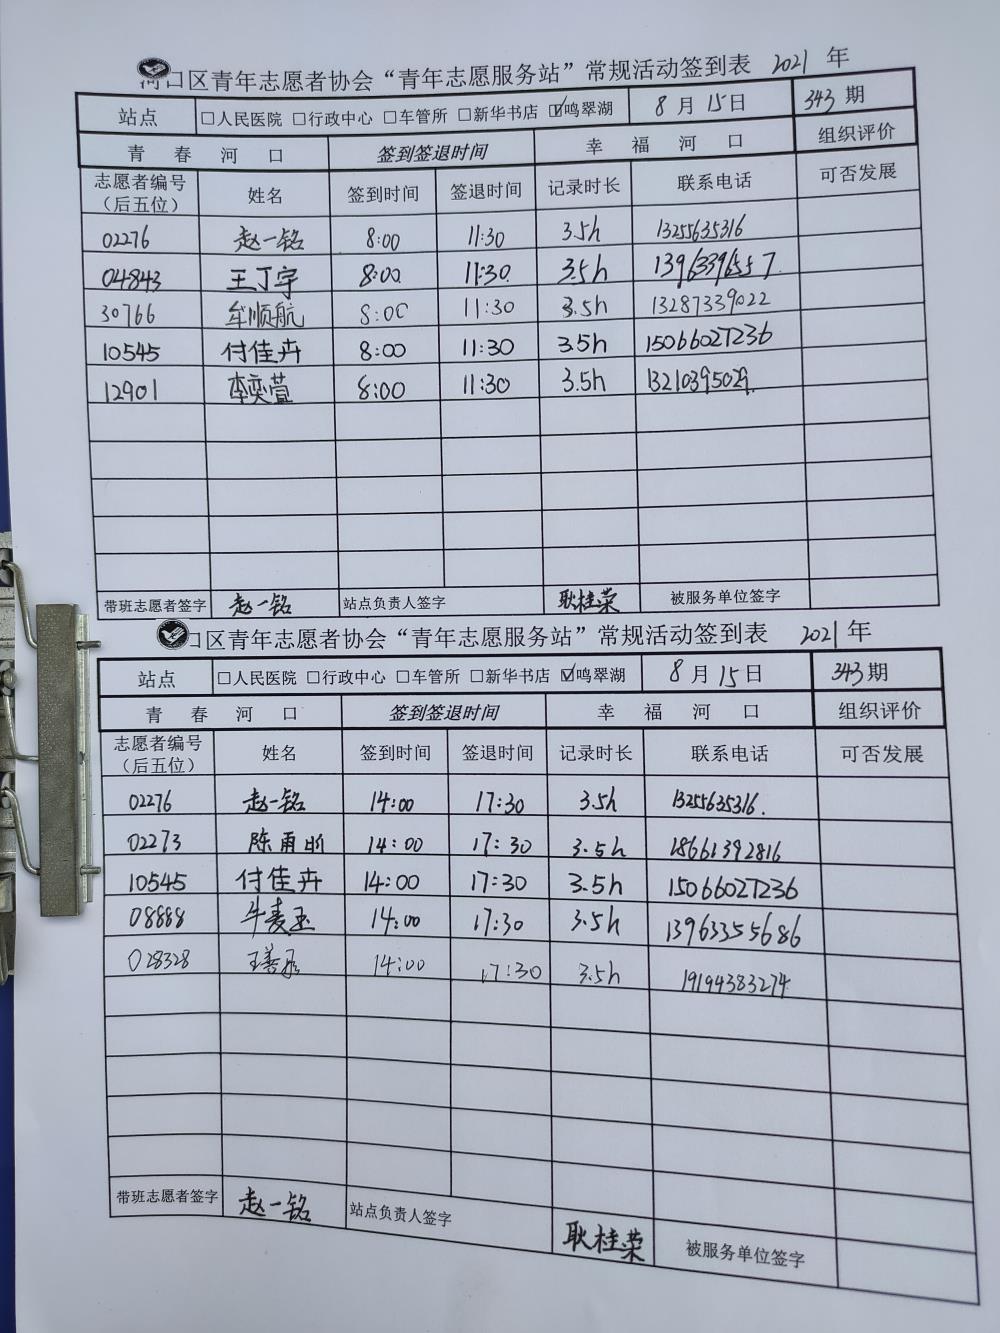 河口区青年志愿者协会“青年志愿服务站”常规活动签到表 2021 年
站点 □人民医院 □行政中心 □车管所 □新华书店 ☑鸣翠湖 8 月 15 日 343 期
青 春 河 口 签到签退时间 幸 福 河 口 组织评价
志愿者编号（后五位） 姓名 签到时间 签退时间 记录时长 联系电话 可否发展
02276 赵一铭 8:00 11:30 3.5h 13255635316
04843 王丁宇 8:00 11:30 3.5h 13963396557
30766 牟顺航 8:00 11:30 3.5h 13287339022
10545 付佳卉 8:00 11:30 3.5h 15066027236
12901 李奕萱 8:00 11:30 3.5h 13210395029
带班志愿者签字 赵一铭 站点负责人签字 耿桂荣 被服务单位签字
口区青年志愿者协会“青年志愿服务站”常规活动签到表 2021 年
站点 □人民医院 □行政中心 □车管所 □新华书店 ☑鸣翠湖 8 月 15 日 343 期
青 春 河 口 签到签退时间 幸 福 河 口 组织评价
志愿者编号（后五位） 姓名 签到时间 签退时间 记录时长 联系电话 可否发展
02276 赵一铭 14:00 17:30 3.5h 13255635316.
02273 陈雨昕 14:00 17:30 3.5h 18661392816
10545 付佳卉 14:00 17:30 3.5h 15066027236
08888 牛麦玉 14:00 17:30 3.5h 13963355686
028328 14:00 17:30 3.5h 19194383274
带班志愿者签字 赵一铭 站点负责人签字 耿桂荣 被服务单位签字